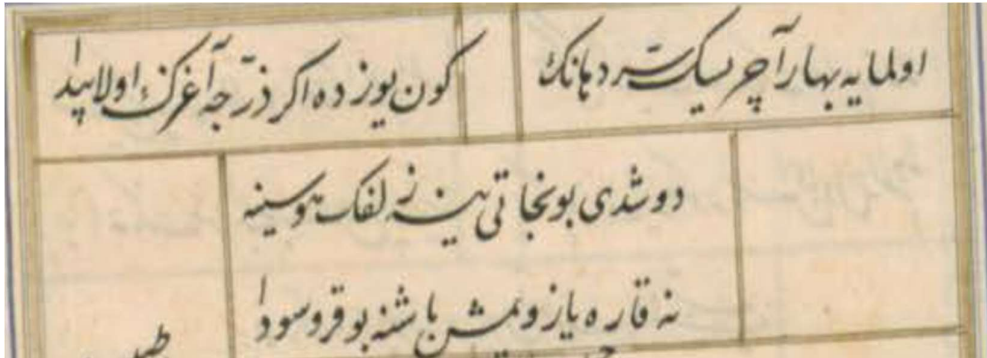 اولمایه بهار آچر ایسک سرّ دهانک
کون یوزده اکر ذرّجه آغزک اولا پیدا
دوشدی بو نجاتی ینه زلفک هوسینه
نه قاره یازویمش باشنه بو قرو سودا